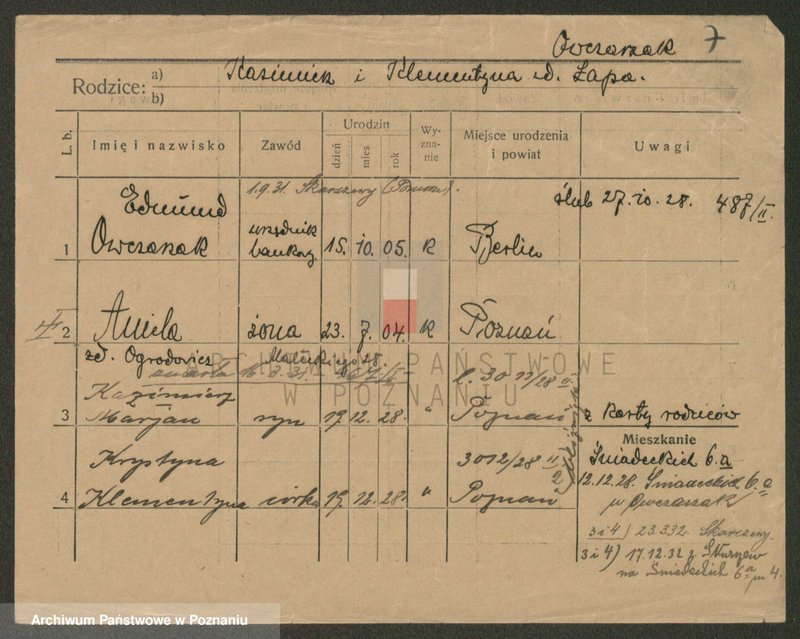 Owczarzak 7
Rodzice: a) Kasimierz i Klementyna zd. Łapa.
b)
L. b. Imię i nazwisko Zawód Urodzin dzień mies rok Wyznanie Miejsce urodzenia i powiat Uwagi
1.9.31. Skarszewy (Pomorze).
ślub 27.10.28. 487/II.
1 Edmund Owczarzak urzędnik bankowy 15. 10. 05. K Berlin
2 Aniela żona 23. 7. 04. K Poznań
zd. Ogrodowicz
zmarła
3 Kazimierz Marjan syn 19 12. 28. " Poznań z karty rodziców
Mieszkanie
Śniadeckich 6.a
12.12.28. Śniadeckich 6.a
u Owczarzak
3012/28 II
4 Krystyna Klementyna córka 19. 12. 28. " Poznań
3 i 4) Skarszewy
3 i 4) 17.12.32 z
na Śniadeckich 6a m 4.
ARCHIWUM PAŃSTWOWE
W POZNANIU
Archiwum Państwowe w Poznaniu